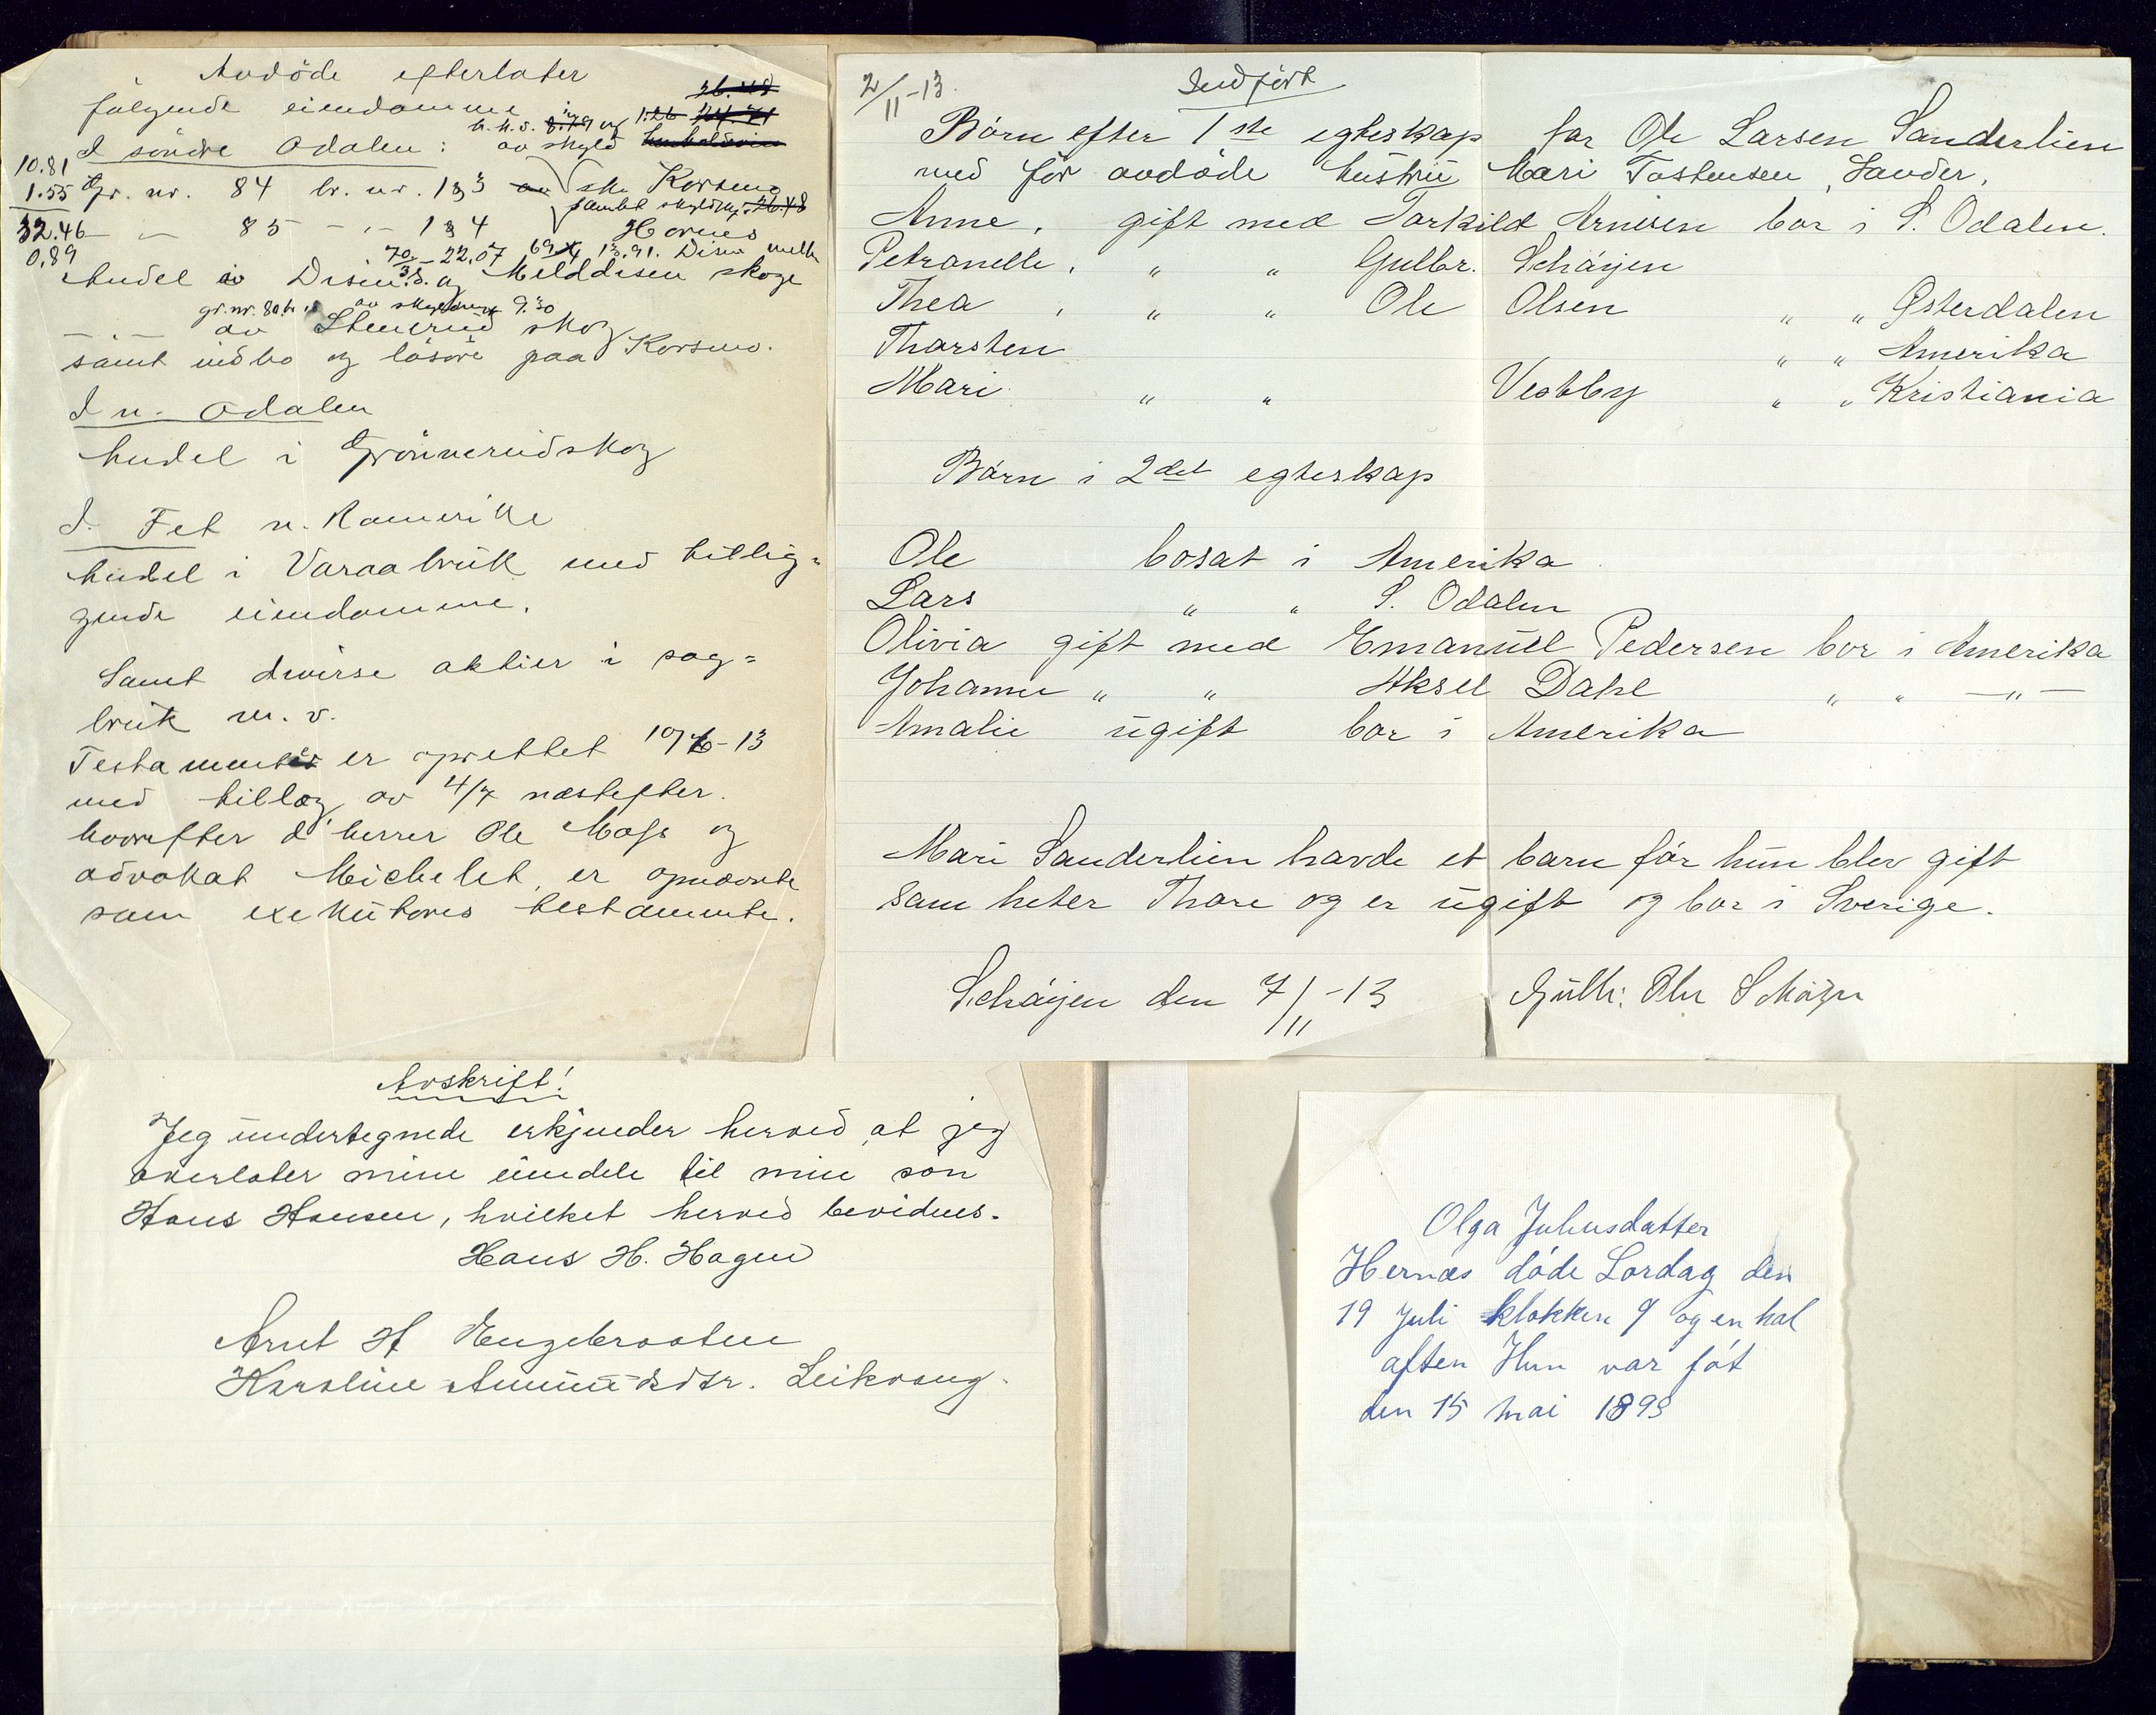 Avdöde efterlater
følgende eiendomme
I söndre Odalen: av skyld
10.81
1.55 Gr. nr. 84 br. nr. 1, 3 Korsmo
32.46 — — 85 — „ — 1, 4 Hornes
0,89
70/3 - 22.07 69/4 13.91. Disen mellem
Andel i Disen s. og Melddisen skoge
gr. nr. 80 av skyldmrk 9.30
— „ — av Stenerud skog
samt indbo og lösöre paa Korsmo.
I n. Odalen
Andel i Grönnerudskog
I Fet n. Romerike
Andel i Varaa bruk med tillig=
gende eiendomme.
Samt diverse aktier i sag=
bruk m. v.
Testamente er oprettet 10/6-13
med tillæg av 4/7 næstefter.
hvorefter d'herrer Ole Moss og
advokat Michelet, er opnævnte
som exekutores testamente.
2/11-13. Indført
Børn efter 1ste egteskap far Ole Larsen Sanderlien
med før avdøde hustru Mari Tostensen, Sander.
Anne, gift med Torkild Arnesen bor i S. Odalen.
Petronelle, „ „ Gulbr. Schøyen
Thea, „ „ Ole Olsen „ „ Østerdalen
Thorsten „ „ Amerika
Mari „ „ Vestby „ „ Kristiania
Børn i 2det egteskap
Ole bosat i Amerika
Lars „ „ S. Odalen
Olivia gift med Emanuel Pedersen bor i Amerika
Johanne „ „ Aksel Dahl „ „ —„—
Amalie ugift bor i Amerika
Mari Sanderlien havde et barn før hun blev gift
som heter Thore og er ugift og bor i Sverige.
Schøyen den 7/11-13 Gulb. Olsen Schøyen
Avskrift!
Jeg undertegnede erkjender herved at jeg
overlater mine eiendele til min søn
Hans Hansen, hvilket herved bevidnes.
Hans H. Hagen
Arnt H Engebraaten
Karoline Amundsdtr. Leikvang.
Olga Juhusdatter
Hernæs døde Lørdag den
19 Juli klokken 9 og en hal
aften Hun var føt
den 15 mai 1893